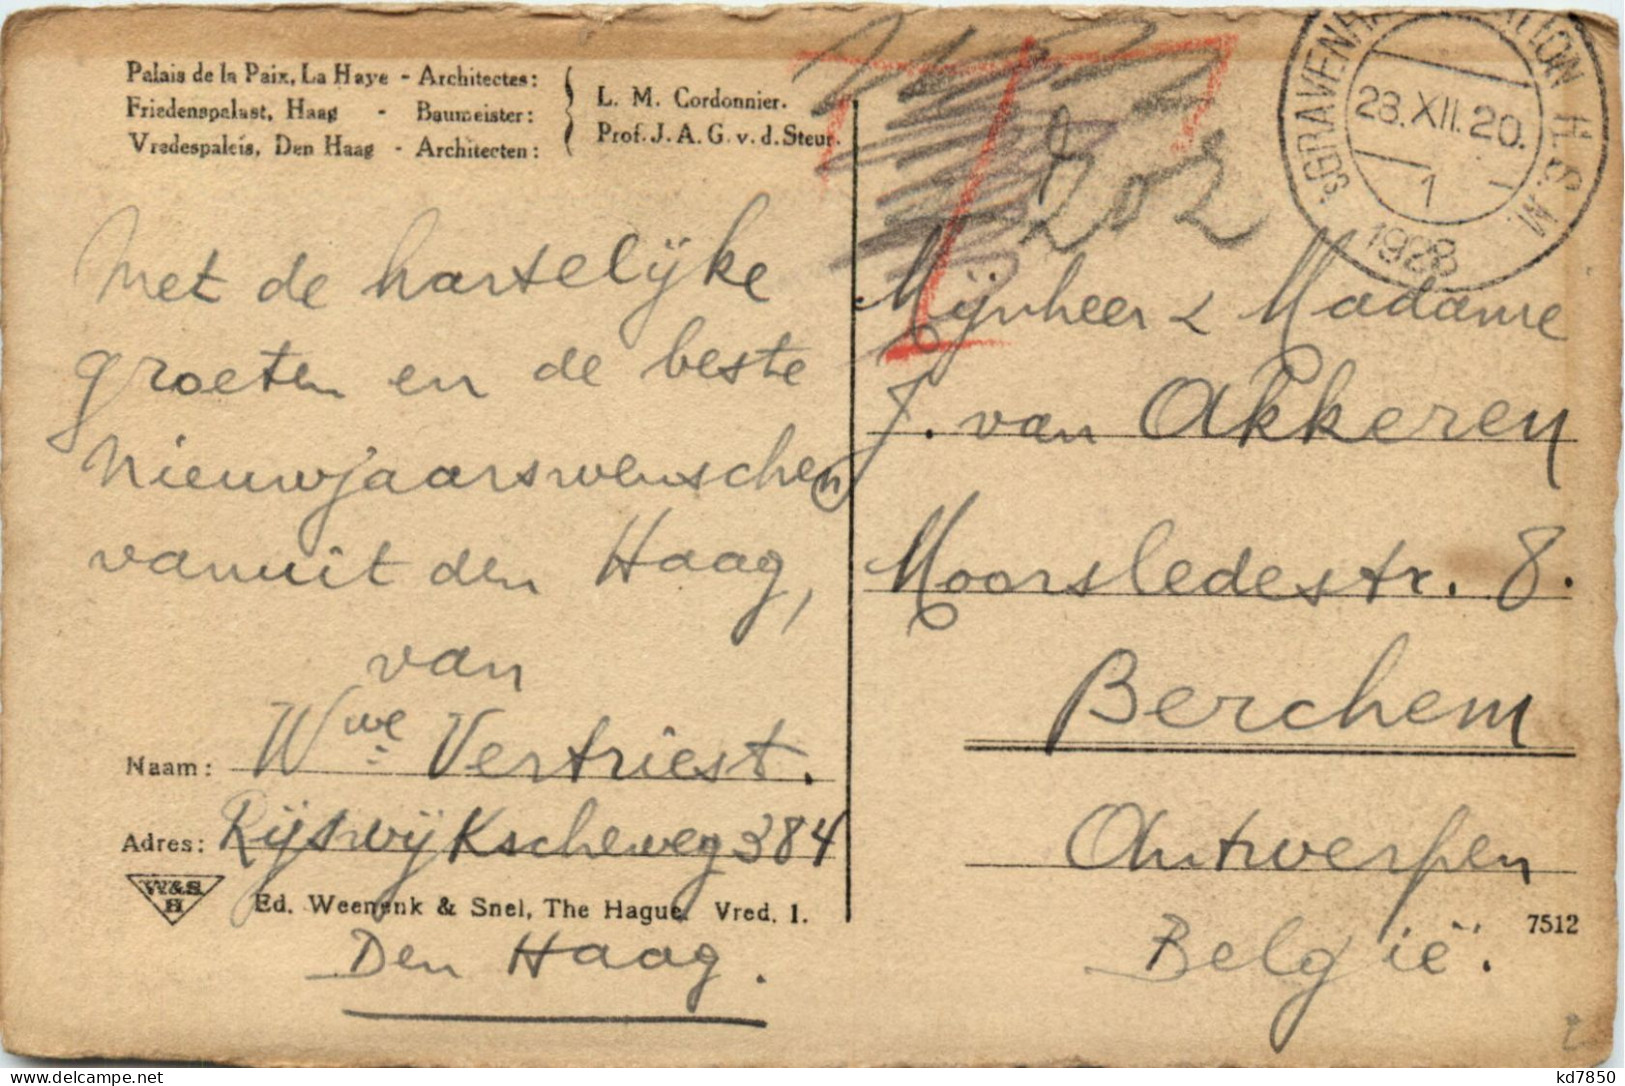 Palais de la Paix, La Haye - Architectes:
Friedenspalast, Haag - Baumeister:
Vredespaleis, Den Haag - Architecten:
L. M. Cordonnier.
Prof. J. A. G. v. d. Steur.
202
'SGRAVENHA
H.S.M.
28.XII.20.
1
1928
Met de hartelijke
groeten en de beste
Nieuwjaarswenschen
vanuit den Haag,
van
Naam: Wwe Vertriest.
Adres: Rijswijkscheweg 384
W&S
H
Ed. Weenenk & Snel, The Hague. Vred. 1.
Den Haag.
Mijnheer & Madame
J. van Akkeren
Moorsledestr. 8.
Berchem
Antwerpen
7512
België.
kd7850